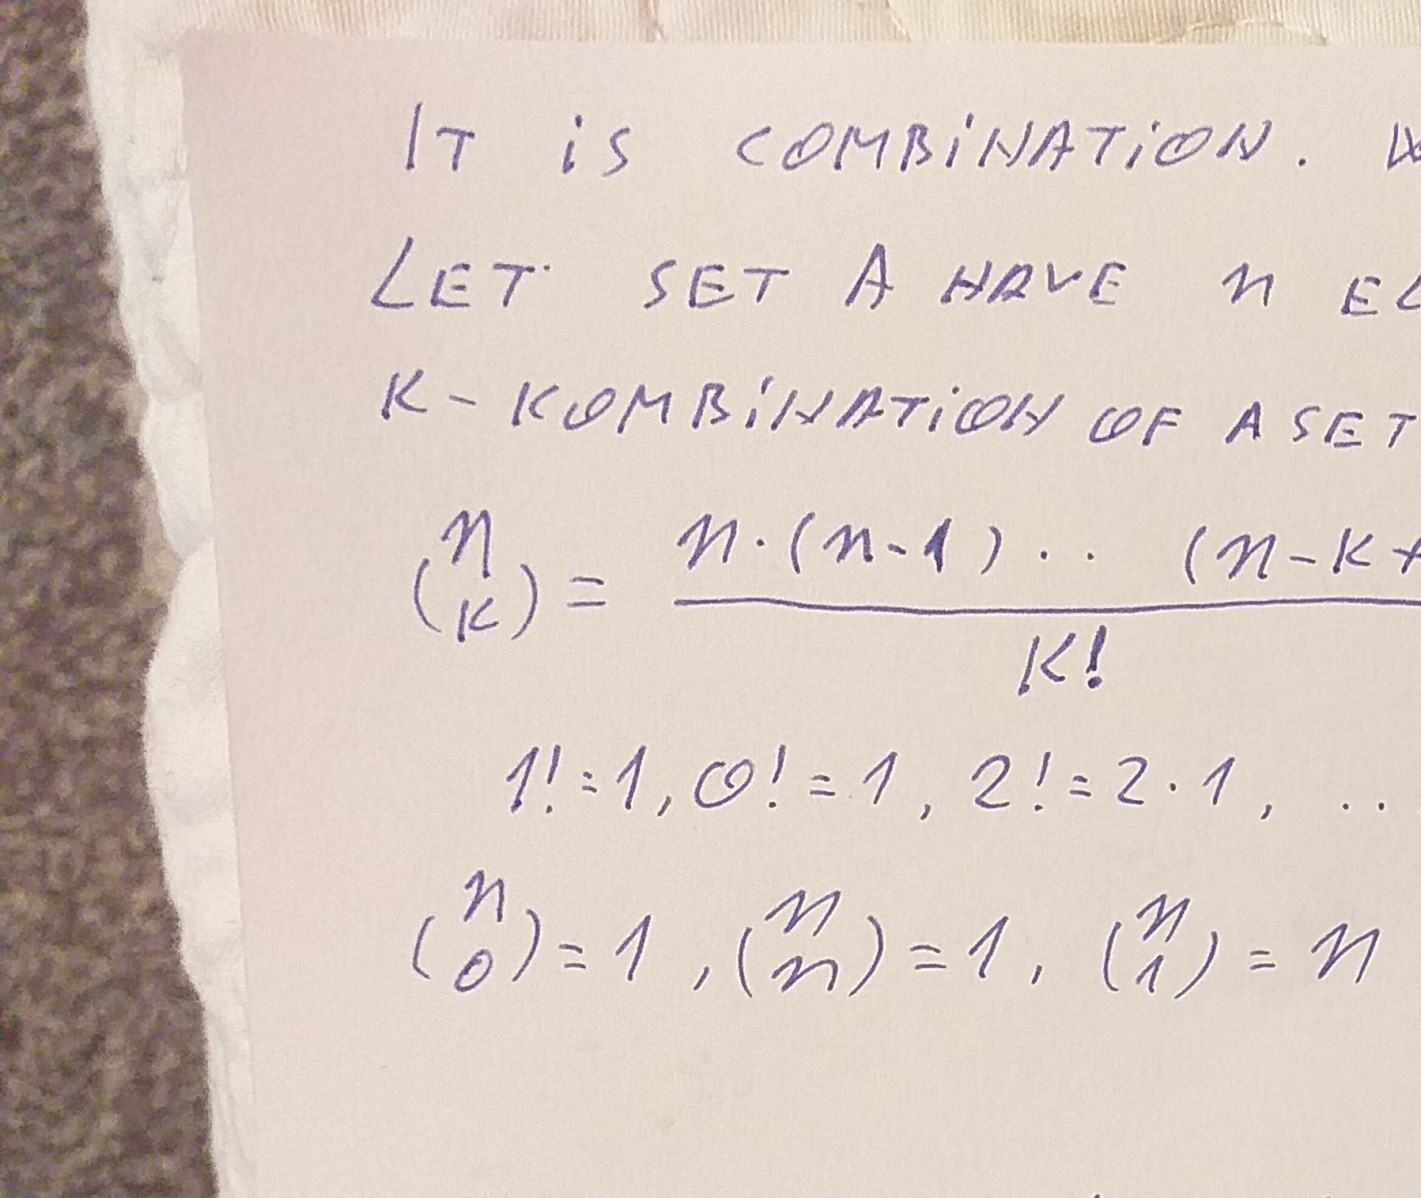 IT iS COMBiNATiON.
LET SET A HAVE n
K-KOMBiNATiON OF A SET
(n K) = n·(n-1) .. (n-K+
K!
1!=1, 0!=1, 2!=2·1, ..
(n 0)=1, (n n)=1, (n 1)=n